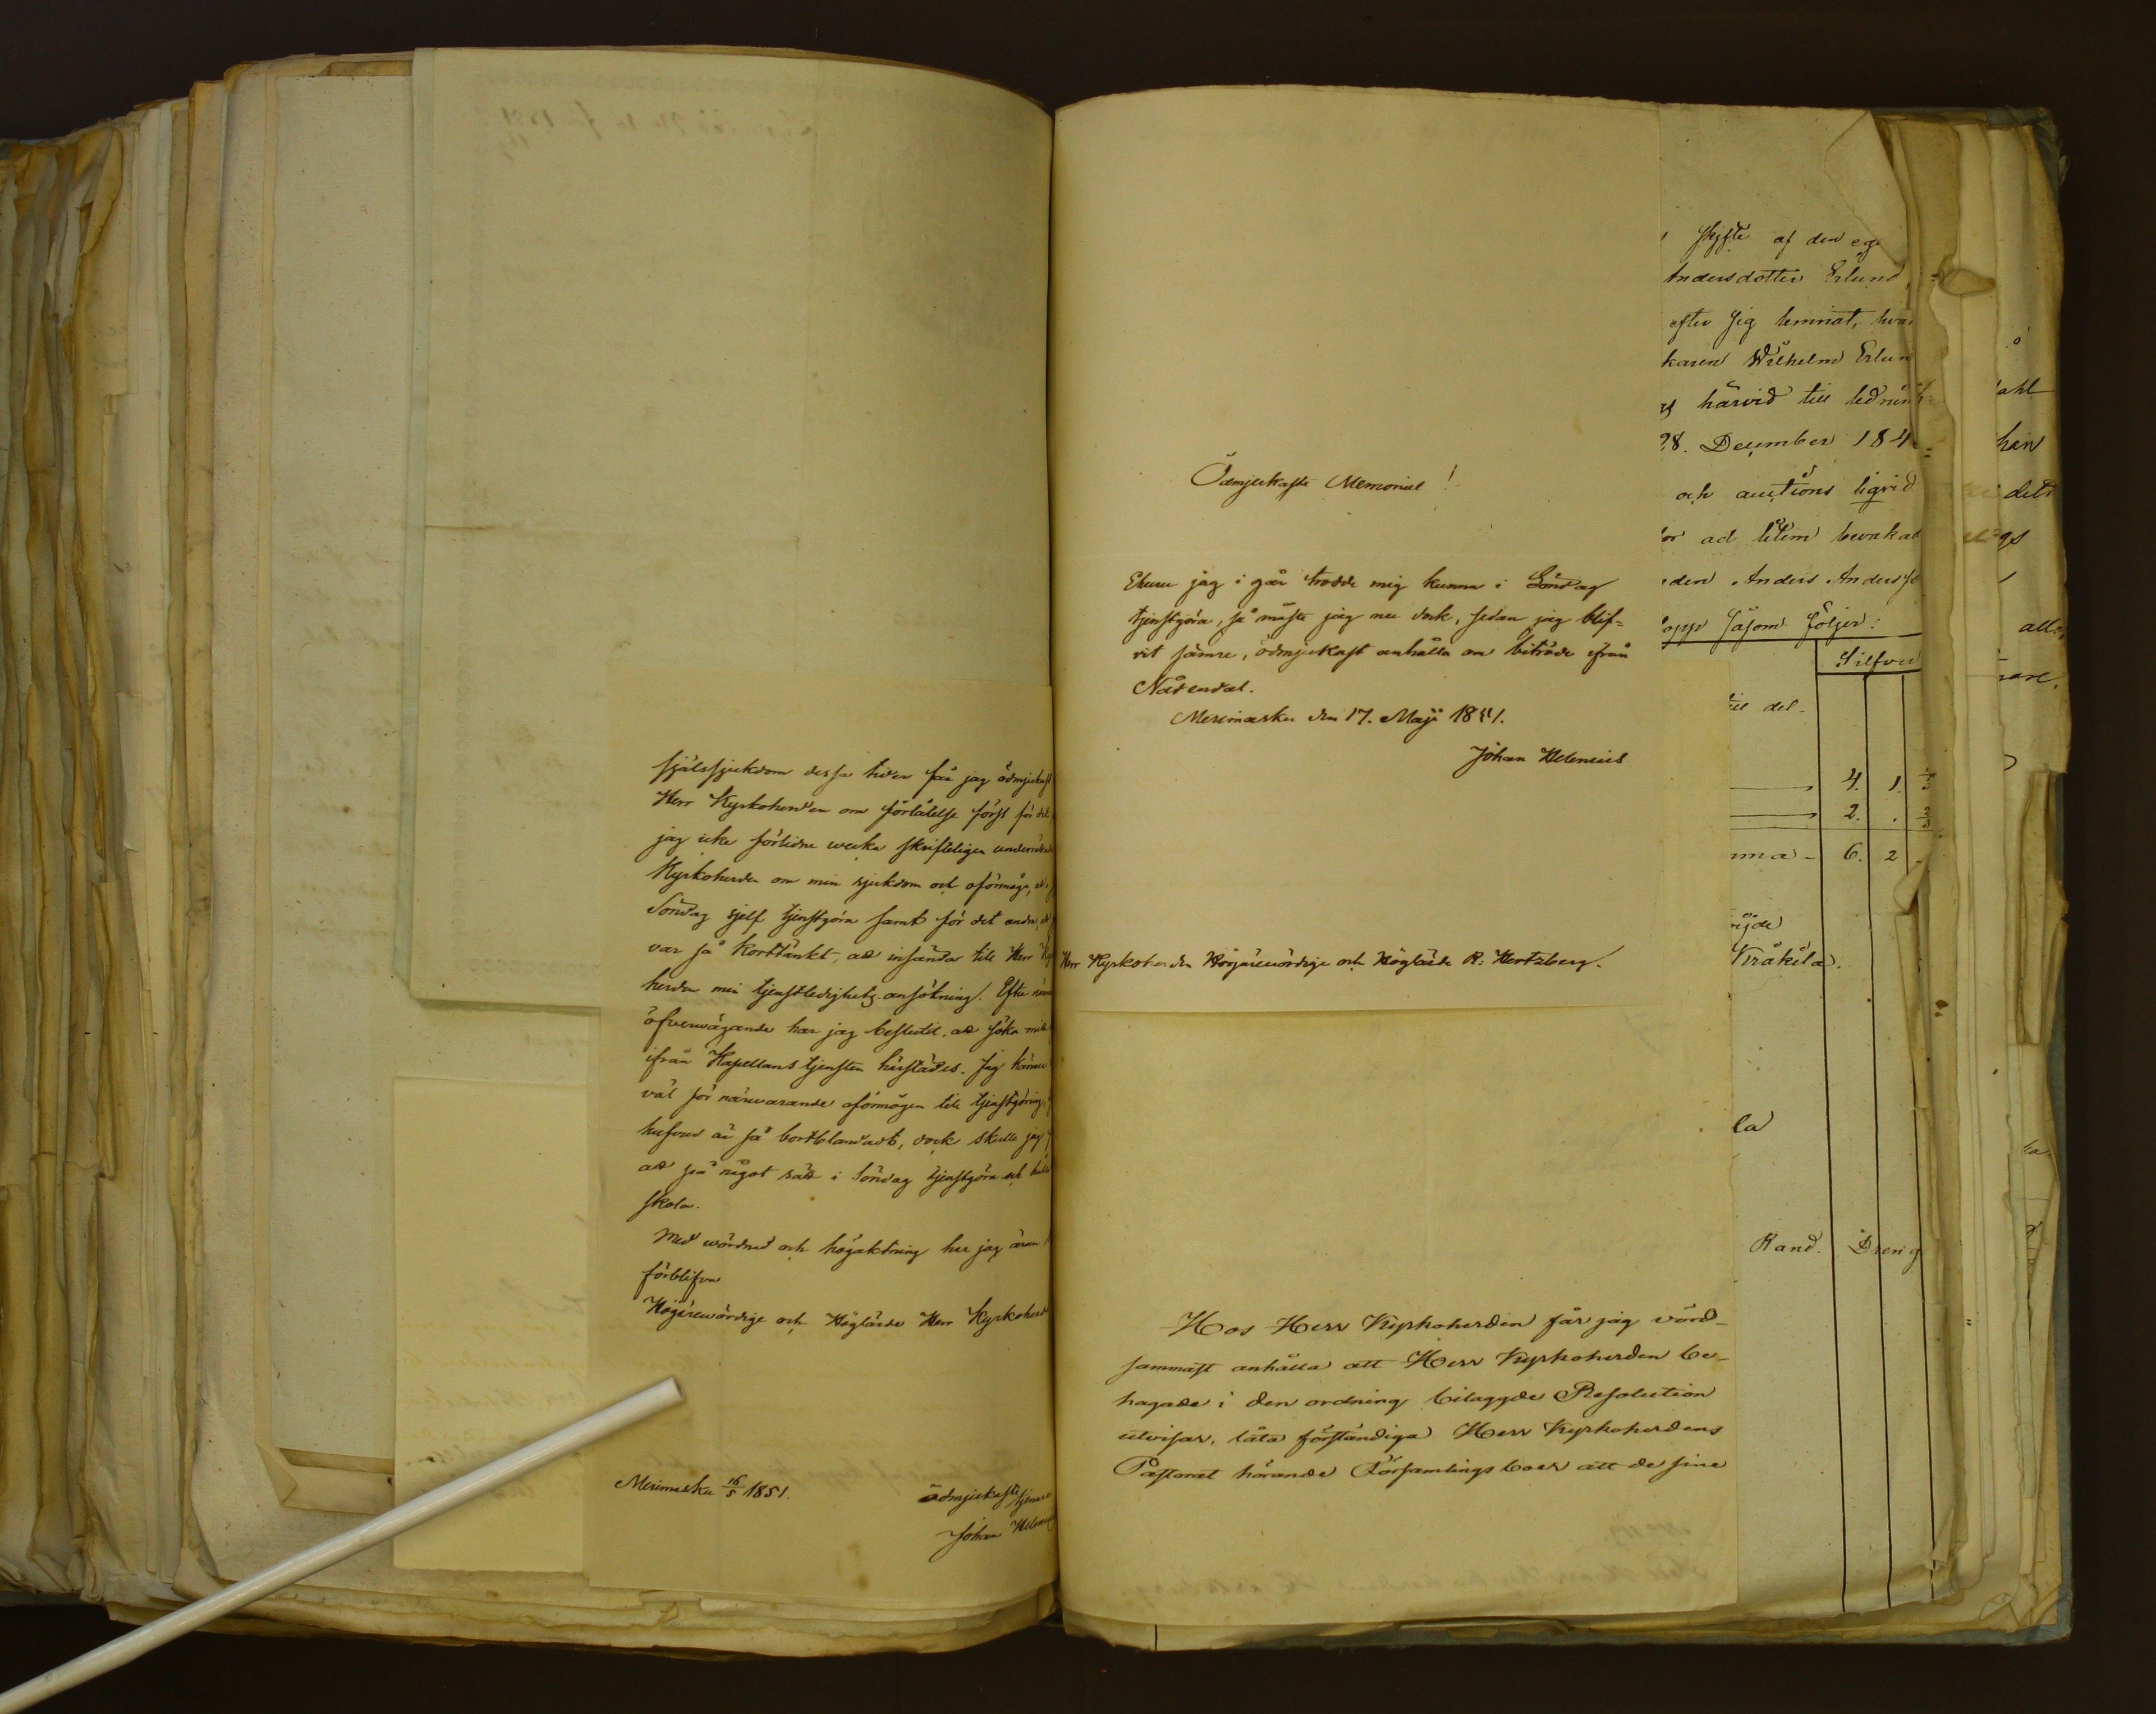 själssjukdom dessa tider får jag ödmjukast
Herr Kyrkoherden om förlåtelse först för det,
jag icke förlidne wecka skrifteligen underrättade
Kyrkoherden om min sjukdom och oförmåga, at i
Söndag sjelf tjenstgöra samt för det andra, at
var så korttänkt, at insända till Herr Kyr
herden min tjenstledighets ansökning. Efter
öfverwägande har jag beslutit, at söka
ifrån Kapellans tjensten härstädes. Jag känner
väl för närwarande oförmögen till tjenstgöring,
hufvud är så bortblandadt, dock skulle jag
at på något sätt i Söndag tjenstgöra och hålla
skola.
Med wördnad och högaktning har jag äran
förblifva
Högärewördige och Höglärde Herr Kyrkoherde
Merimasku 16/5 1851.
ödmjukaste tjenare
Johan Helenius
Ödmjukaste Memorial!
Ehuru jag i går trodde mig kunna i Söndag
tjenstgöra, så måste jag nu dock, sedan jag blif=
vit sämre, ödmjukast anhålla om biträde ifrån
Nådendal.
Merimasku den 17. Maji 1851.
Johan Helenius
Herr Kyrkoherden Högärewördige och Höglärde R: Hertzberg.
Hos Herr Kyrkoherden får jag vörd-
sammast anhålla att Herr Kyrkoherden be-
hagade i den ordning bilaggde Resolution
utvisar, låta förständiga Herr Kyrkoherdens
Pastorat hörande Församlings boer att de sine
skyfte af den eg
Andersdotter Erlund,
efter sig lemnat, hva
karen Wilhelm Erlun
härvid till ledning
28. December 184
och auctions liqvid
ad litem bevakad
den Anders Anders
lopp såsom följer:
Silfver
till del-
4. 1.
2. .
mma - 6. 2 -
röjde
Kråkila.
la
Rand. Dreng
ahl
han
det
gs
all=